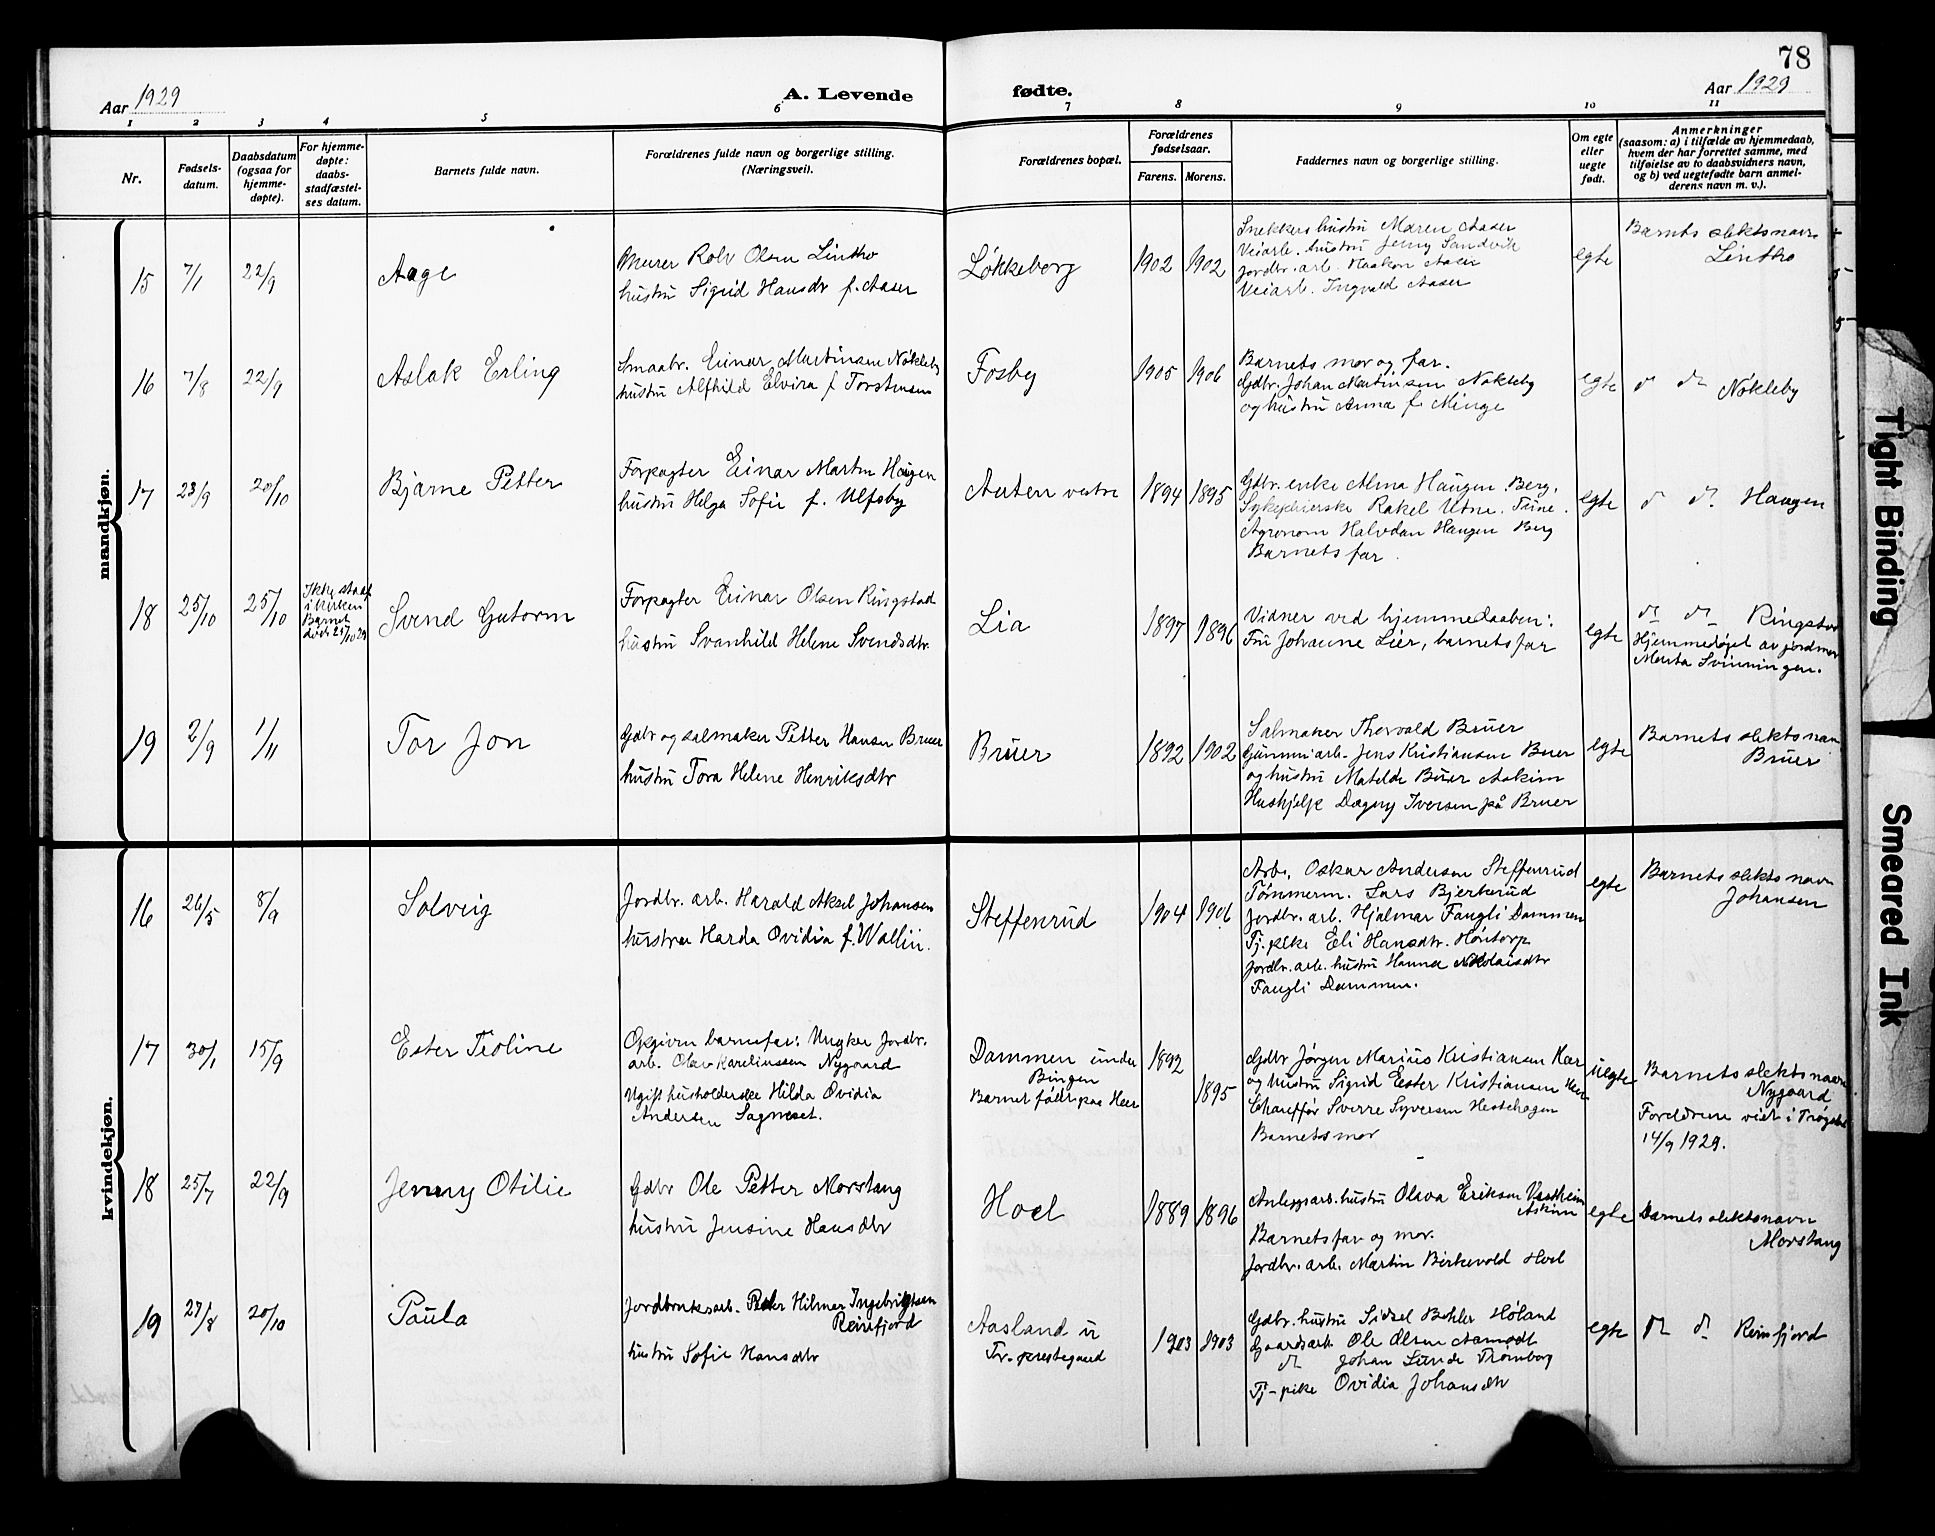 78
Aar 1929
A. Levende
fødte.
Aar 1929
1 2 3 4 5 6 7 8 9 10 11
Nr.
Fødsels-
datum.
Daabsdatum
(ogsaa for
hjemme-
døpte).
For hjemme-
døpte:
daabs-
stadfæstel-
ses datum.
Barnets fulde navn.
Forældrenes fulde navn og borgerlige stilling.
(Næringsvei).
Forældrenes bopæl.
Forældrenes
fødselsaar.
Farens. Morens.
Faddernes navn og borgerlige stilling.
Om egte
eller
uegte
født.
Anmerkninger
(saasom: a) i tilfælde av hjemmedaab,
hvem der har forrettet samme, med
tilføielse av to daabsvidners navn,
og b) ved uegtefødte barn anmel-
derens navn m. v.).
mandkjøn.
15 7/1 22/9
Aage
Murer Rolv Olsen Lintho
hustru Sigrid Hansdr f. Aaser
Løkkeberg
1902 1902
Snekkers hustru Maren Aaser
Veiarb. hustru Jenny Sandvik
Jordbr. arb. Haakon Aaser
Veiarb. Ingvald Aaser
egte
Barnets slektsnavn
Lintho
16 7/8 22/9
Aslak Erling
Smaabr. Einar Martinsen Nøkleby
hustru Alfhild Elvira f. Torstensen
Fosby
1905 1906
Barnets mor og far.
Gdbr. Johan Martinsen Nøkleby
og hustru Anna f. Minge
egte
do do Nøkleby
17 23/9 20/10
Bjarne Petter
Forpagter Einar Martin Haugen
hustru Helga Sofie f. Ulfsby
Auten vestre
1894 1895
Gdbr. enke Alma Haugen, Berg.
Sykepleierske Rakel Utne.
Agronom Halvdan Haugen Berg
Barnets far.
egte
do do Haugen
18 25/10 25/10
Ikke stadf
i kirken
Barnet
døde 25/10 29
Svend Gutorm
Forpagter Einar Olsen Ringstad
hustru Svanhild Helene Svendsdtr.
Lia
1897 1896
Vidner ved hjemmedaaben:
Fru Johanne Lier, barnets far
egte
do do Ringstad
Hjemmedøpt av jordmor
Marta Svinningen.
19 2/9 1/11
Tor Jon
Gdbr og salmaker Petter Hansen Bruer
hustru Tora Helene Henriksdtr
Bruer
1892 1902
Salmaker Thorvald Bruer
Gummiarb. Jens Kristiansen Buer
og hustru Matilde Buer Askim
Hushjelp Dagny Iversen på Bruer
egte
Barnets slektsnavn
Bruer
kvindekjøn.
16 26/5 8/9
Solveig
Jordbr. arb. Harald Aksel Johansen
hustru Harda Ovidia f. Wallin.
Steffenrud
1904 1906
Arb. Oskar Andersen Steffenrud
Tømmerm. Lars Bjerkerud
Jordbr. arb. Hjalmar Fangli Dammen
Tj. pike Eli Hansdtr. Høntorp
Jordbr. arb. hustru Hanna Nikolaisdtr
Fangli Dammen.
egte
Barnets slektsnavn
Johansen
17 30/1 15/9
Ester Teoline
Opgiven barnefar: Ungkar Jordbr.
arb. Olav Kareliussen Nygaard
Ugift husholderske Hilda Ovidia
Andersen Sagmoset.
Dammen under
Bingen
Barnet født paa Heer
1892
1895
Gdbr Jørgen Marius Kristiansen Hær
og hustru Sigrid Ester Kristiansen Heer
Chauffør Sverre Syversen Hestehagen
Barnets mor
uegte
Barnets slektsnavn
Nygaard
Foreldrene viet i Trøgstad
14/9 1929.
18 25/7 22/9
Jenny Otilie
Gdbr Ole Petter Morstang
hustru Jensine Hansdtr
Hoel
1889 1896
Anleggsarb. hustru Olava Eriksen
Askim
Barnets far og mor.
Jordbr. arb. Martin Birkevold Hoel
egte
Barnets slektsnavn
Morstang
19 27/8 20/10
Paula
Jordbruksarb. Peder Hilmer Ingebrigtsen
Reinfjord
hustru Sofie Hansdtr
Aasland u
Tr. prestegaard
1903 1903
Gdbr. hustru Sidsel Bøhler Høland
Gaardsarb. Ole Olsen Aamodt
do Johan Lunde Trømborg
Tj-pike Ovidia Johansdtr
egte
do do Reinfjord
Tight Binding
Smeared Ink